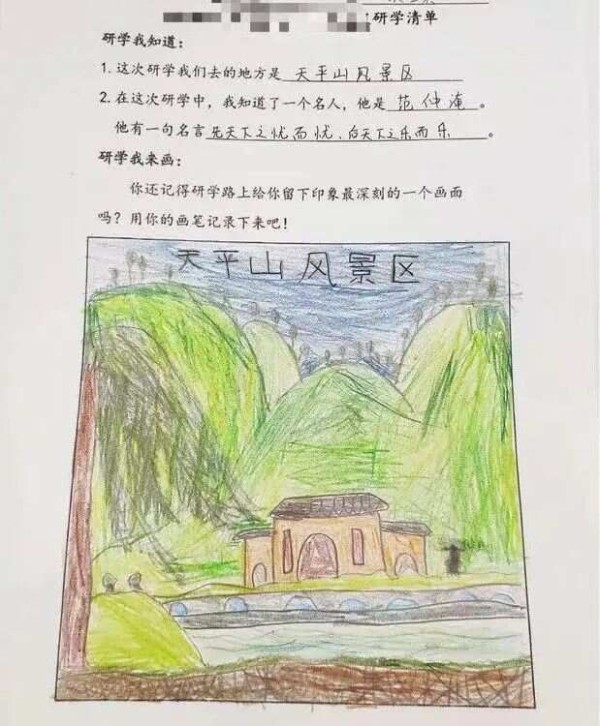 研学清单
研学我知道：
1. 这次研学我们去的地方是 天平山风景区
2. 在这次研学中，我知道了一个名人，他是 范仲淹 。
他有一句名言 先天下之忧而忧、后天下之乐而乐 。
研学我来画：
你还记得研学路上给你留下印象最深刻的一个画面
吗？用你的画笔记录下来吧！
天平山风景区